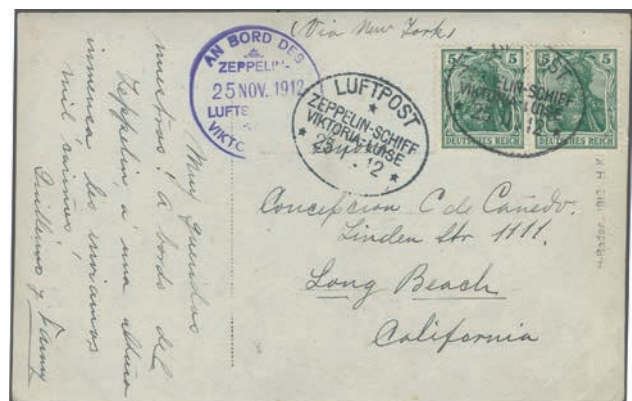 (Via New York)
AN BORD DES
ZEPPELIN-
25 NOV. 1912
LUFTS
VIKTO
LUFTPOST
ZEPPELIN-SCHIFF
VIKTORIA-LUISE
25 12
5 5
5 5
POST
ELIN-SCHIFF
VIKTORIA-LUISE
25 12
DEUTSCHES REICH DEUTSCHES REICH
Concepcion C de Cañedo.
Linden Str 1111.
Long Beach
California
Muy queridas
nuestras: A bordo del
Zeppelin, á una altura
inmensa les enviamos
mil cariños,
Guillermo y Fanny